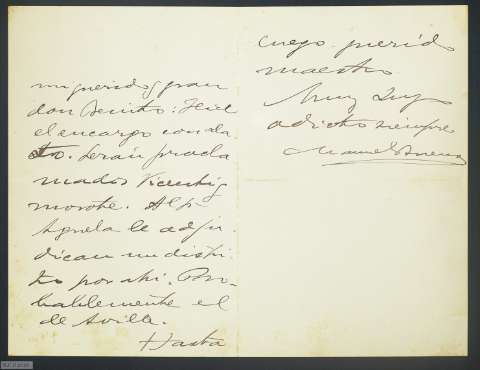 mi querido y gran
don Benito: Hice
el encargo con da
to. Serán procla
mados Vicenti y
Morote. Al fin
Agrela le adju
dican un distri-
to por ahí. Pro-
bablemente el
de Avila.
Hasta
luego querido
maestro
Muy suyo
adicto siempre
Manuel Bueno